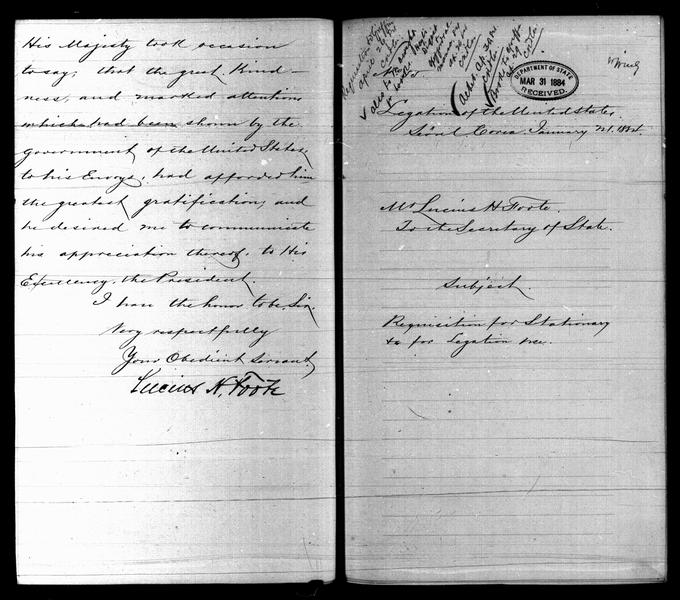 His Majesty took occasion
to say, that the great Kind-
ness, and marked attentions
which had been shown by the
government of the United States,
to his Envoys, had afforded him
the greatest gratification, and
he desired me to communicate
his appreciation thereof, to His
Excellency, the President.
I have the honor to be, Sir,
Very respectfully
Your Obedient Servant,
Lucius H. Foote
DEPARTMENT OF STATE
MAR 31 1884
RECEIVED.
Legation of the United States,
Söul Corea January 21. 1884.
Mr Lucius H Foote.
To the Secretary of State.
Subject
Requisition for Stationary
&c for Legation use.